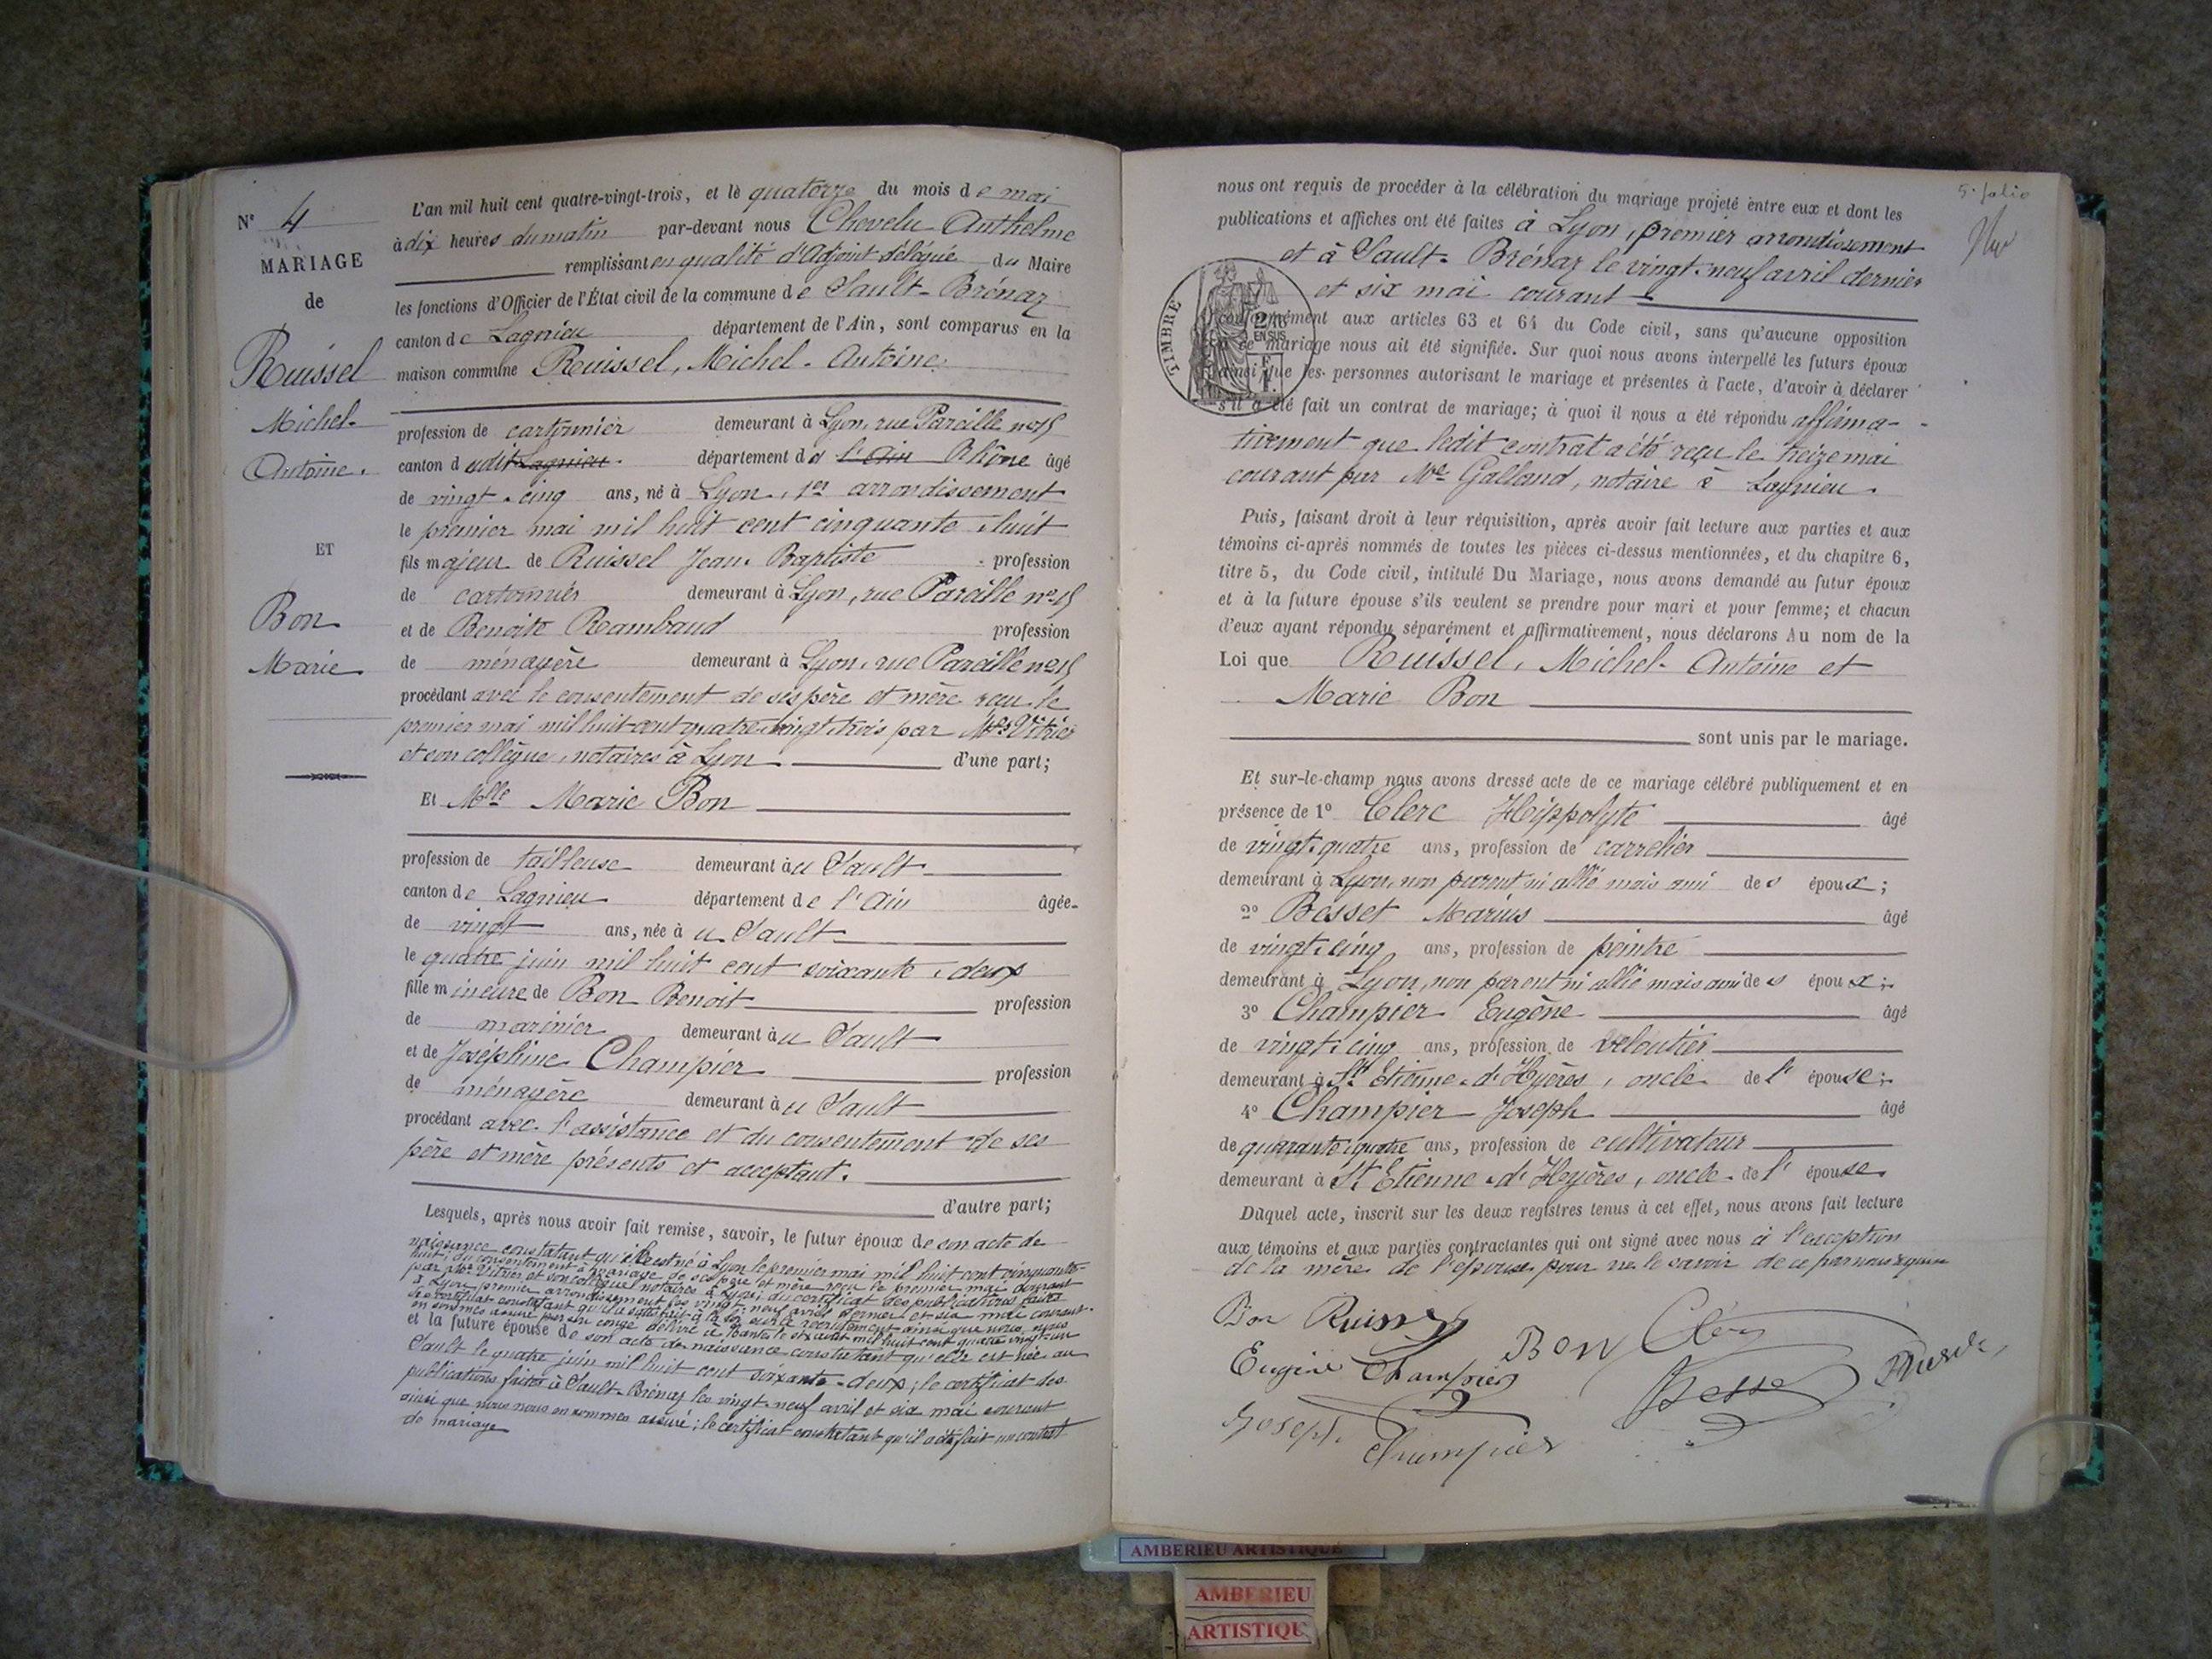 N° 4
MARIAGE
de
Ruissel
Michel-
Antoine.
ET
Bon
Marie
L'an mil huit cent quatre-vingt-trois, et le quatorze du mois de mai
à dix heures du matin par-devant nous Chevelu Anthelme
remplissant en qualité d'Adjoint délégué du Maire
les fonctions d'Officier de l'État civil de la commune de Sault-Brénaz
canton de Lagnieu département de l'Ain, sont comparus en la
maison commune Ruissel, Michel-Antoine
profession de cartonnier demeurant à Lyon, rue Pareille n° 15
canton dudit Lagnieu département de l'Ain Rhône âgé
de vingt-cinq ans, né à Lyon, 1er arrondissement
le premier mai mil huit cent cinquante-huit
fils majeur de Ruissel Jean-Baptiste profession
de cartonnier demeurant à Lyon, rue Pareille n° 15
et de Benoite Rambaud profession
de ménagère demeurant à Lyon, rue Pareille n° 15
procédant avec le consentement de ses père et mère reçu le
premier mai mil huit cent quatre-vingt-trois par Mes Vitrier
et son collègue, notaires à Lyon d'une part;
Et Mlle Marie Bon
profession de tailleuse demeurant au Sault
canton de Lagnieu département de l'Ain âgée
de vingt ans, née à u Sault
le quatre juin mil huit cent soixante-deux
fille mineure de Bon Benoit profession
de marinier demeurant à u Sault
et de Joséphine Champier profession
de ménagère demeurant à u Sault
procédant avec l'assistance et du consentement de ses
père et mère présents et acceptant.
d'autre part;
Lesquels, après nous avoir fait remise, savoir, le futur époux de son acte de
naissance constatant qu'il est né à Lyon le premier mai mil huit cent cinquante-
huit; du consentement à mariage de ses père et mère reçu le premier mai courant
par Mes Vitrier et son collègue, notaires à Lyon; du certificat des publications faites
à Lyon premier arrondissement les vingt-neuf avril dernier et six mai courant.
le certificat constatant qu'il a satisfait à la loi sur le recrutement ainsi que nous nous
en sommes assuré par un congé délivré à le six août mil huit cent quatre-vingt-un
et la future épouse de son acte de naissance constatant qu'elle est née au
Sault le quatre juin mil huit cent soixante-deux; le certificat des
publications faites à Sault-Brénaz les vingt-neuf avril et six mai courant
ainsi que nous nous en sommes assuré; le certificat constatant qu'il a été fait un contrat
de mariage
5e folio
nous ont requis de procéder à la célébration du mariage projeté entre eux et dont les
publications et affiches ont été faites à Lyon, premier arrondissement
et à Sault-Brénaz le vingt-neuf avril dernier
et six mai courant
TIMBRE
2/10
EN SUS
conformément aux articles 63 et 64 du Code civil, sans qu'aucune opposition
à ce mariage nous ait été signifiée. Sur quoi nous avons interpellé les futurs époux
ainsi que les personnes autorisant le mariage et présentes à l'acte, d'avoir à déclarer
s'il a été fait un contrat de mariage; à quoi il nous a été répondu affirma-
tivement que ledit contrat a été reçu le treize mai
courant par Me Galland, notaire à Lagnieu.
Puis, faisant droit à leur réquisition, après avoir fait lecture aux parties et aux
témoins ci-après nommés de toutes les pièces ci-dessus mentionnées, et du chapitre 6,
titre 5, du Code civil, intitulé Du Mariage, nous avons demandé au futur époux
et à la future épouse s'ils veulent se prendre pour mari et pour femme; et chacun
d'eux ayant répondu séparément et affirmativement, nous déclarons Au nom de la
Loi que Ruissel, Michel-Antoine et
Marie Bon
sont unis par le mariage.
Et sur-le-champ nous avons dressé acte de ce mariage célébré publiquement et en
présence de 1° Clerc Hippolyte âgé
de vingt-quatre ans, profession de carrelier
demeurant à Lyon, non parent ni allié mais ami des époux;
2° Besset Marius âgé
de vingt-cinq ans, profession de peintre
demeurant à Lyon, non parent ni allié mais ami des époux;
3° Champier Eugène âgé
de vingt-cinq ans, profession de veloutier
demeurant à St Etienne-d'Hyères, oncle de l'épouse;
4° Champier Joseph âgé
de quarante-quatre ans, profession de cultivateur
demeurant à St Etienne-d'Heyères, oncle de l'épouse
Duquel acte, inscrit sur les deux registres tenus à cet effet, nous avons fait lecture
aux témoins et aux parties contractantes qui ont signé avec nous à l'exception
de la mère de l'épouse pour ne le savoir de ce par nous requise
Bon Ruissel
Eugène Champier Bon
Besset
Joseph
Champier
AMBERIEU ARTISTIQUE
AMBERIEU
ARTISTIQU